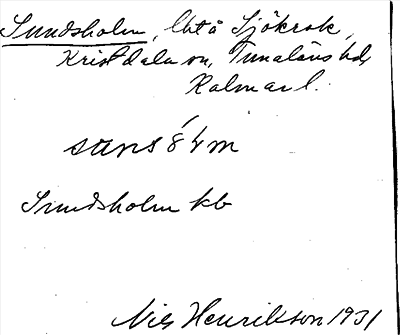 Sundsholm, lht å Sjökrok,
Kristdala sn, Tunaläns hd,
Kalmar l.
súns`ôḷm
Sundsholm kb
Nils Henrikson 1931